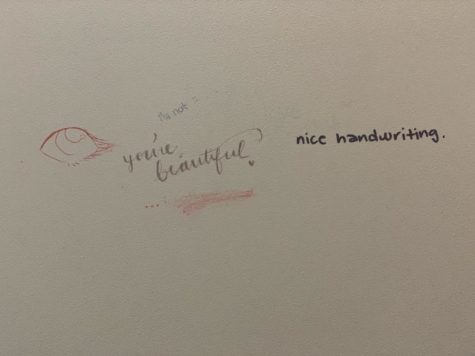 I'm not :
you're
beautiful
nice handwriting.
...